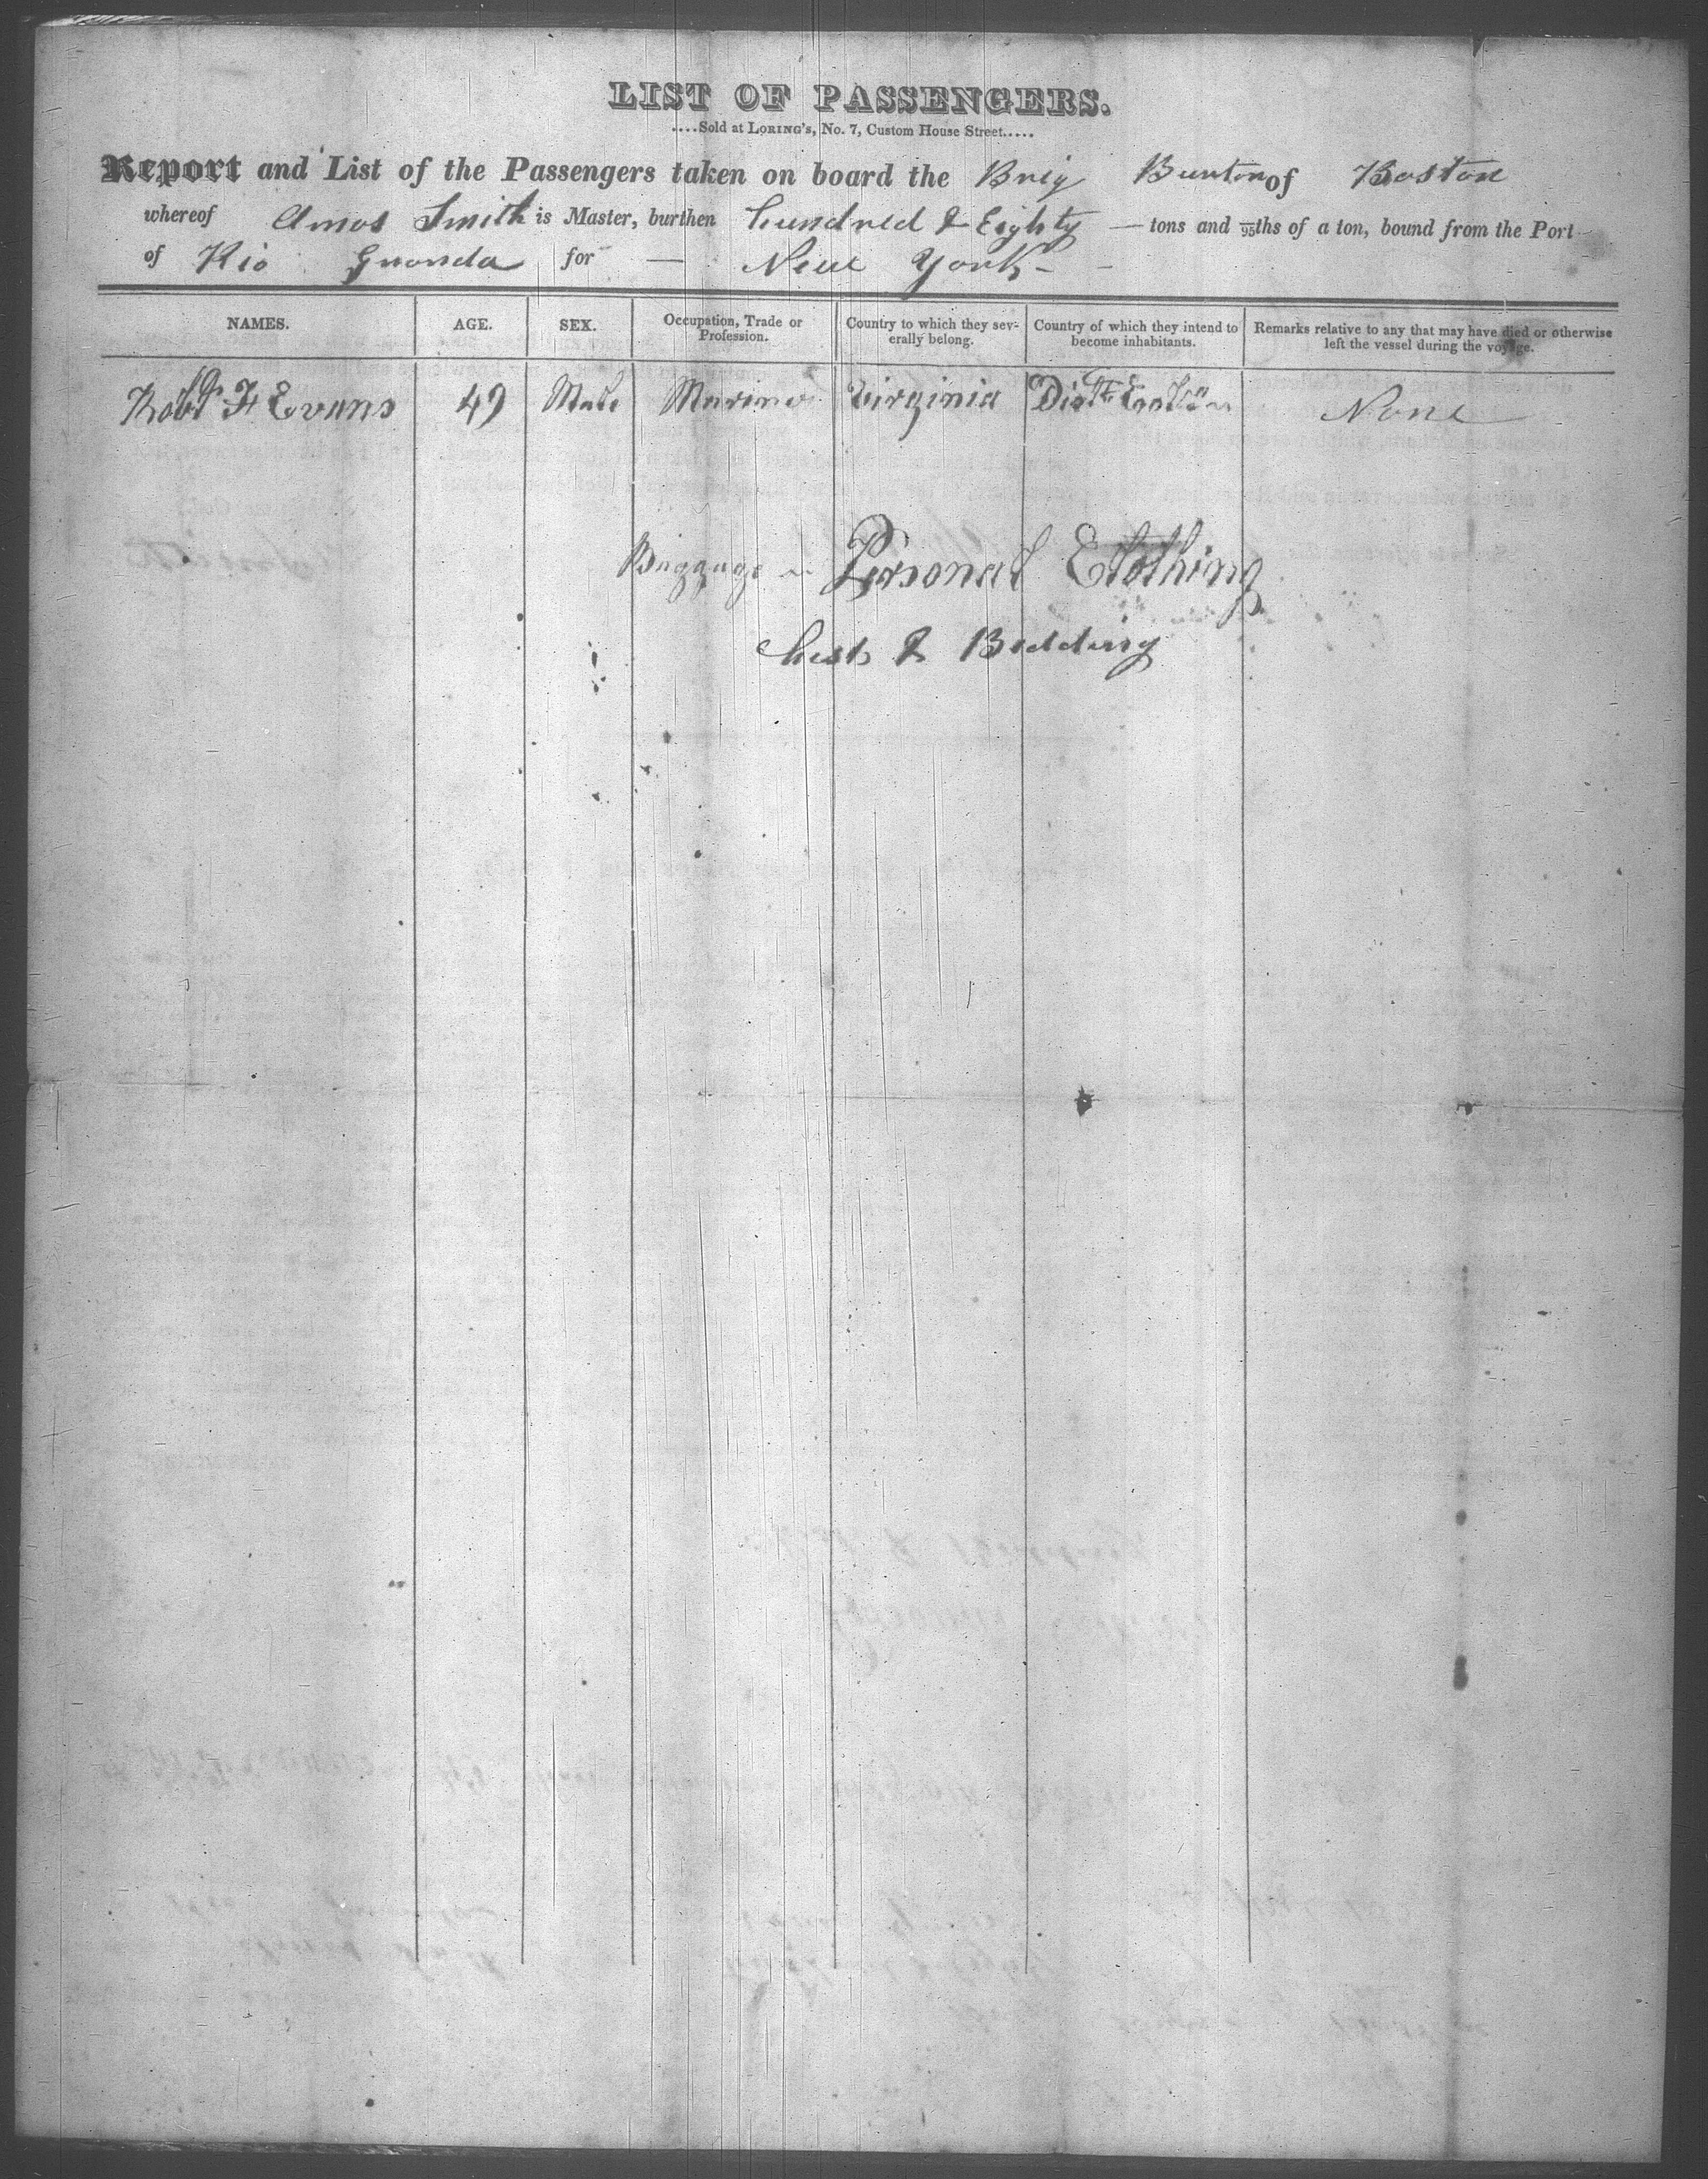 LIST OF PASSENGERS.
....Sold at LORING'S, No. 7, Custom House Street.....
Report and List of the Passengers taken on board the Brig Burton of Boston
whereof Amos Smith is Master, burthen hundred & Eighty — tons and 95ths of a ton, bound from the Port
of Rio Granda for — New York -
NAMES. AGE. SEX. Occupation, Trade or Profession. Country to which they severally belong. Country of which they intend to become inhabitants. Remarks relative to any that may have died or otherwise left the vessel during the voyage.
Robt F Evans 49 Male Mariner Virginia None
Baggage Personal Clothing
Chest & Bedding